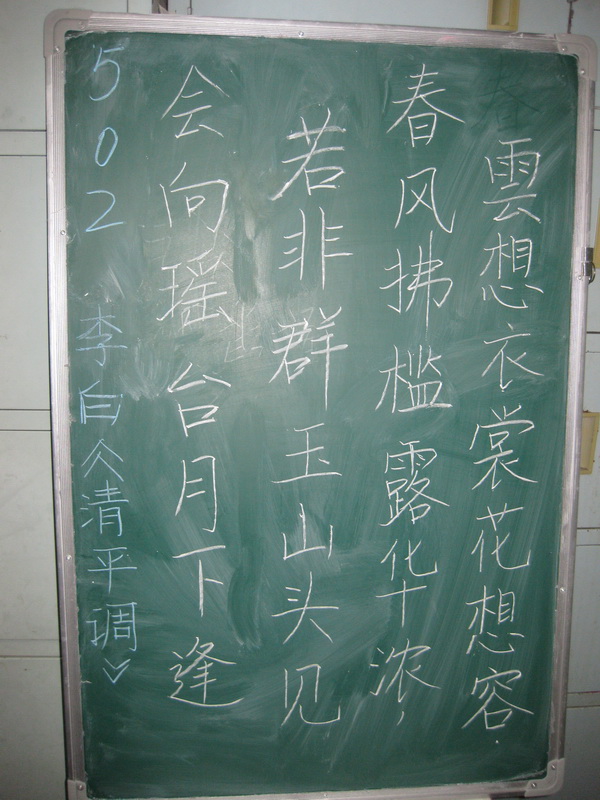 雲想衣裳花想容.
春风拂槛露华浓,
若非群玉山头见
会向瑶台月下逢
502 李白久清平调